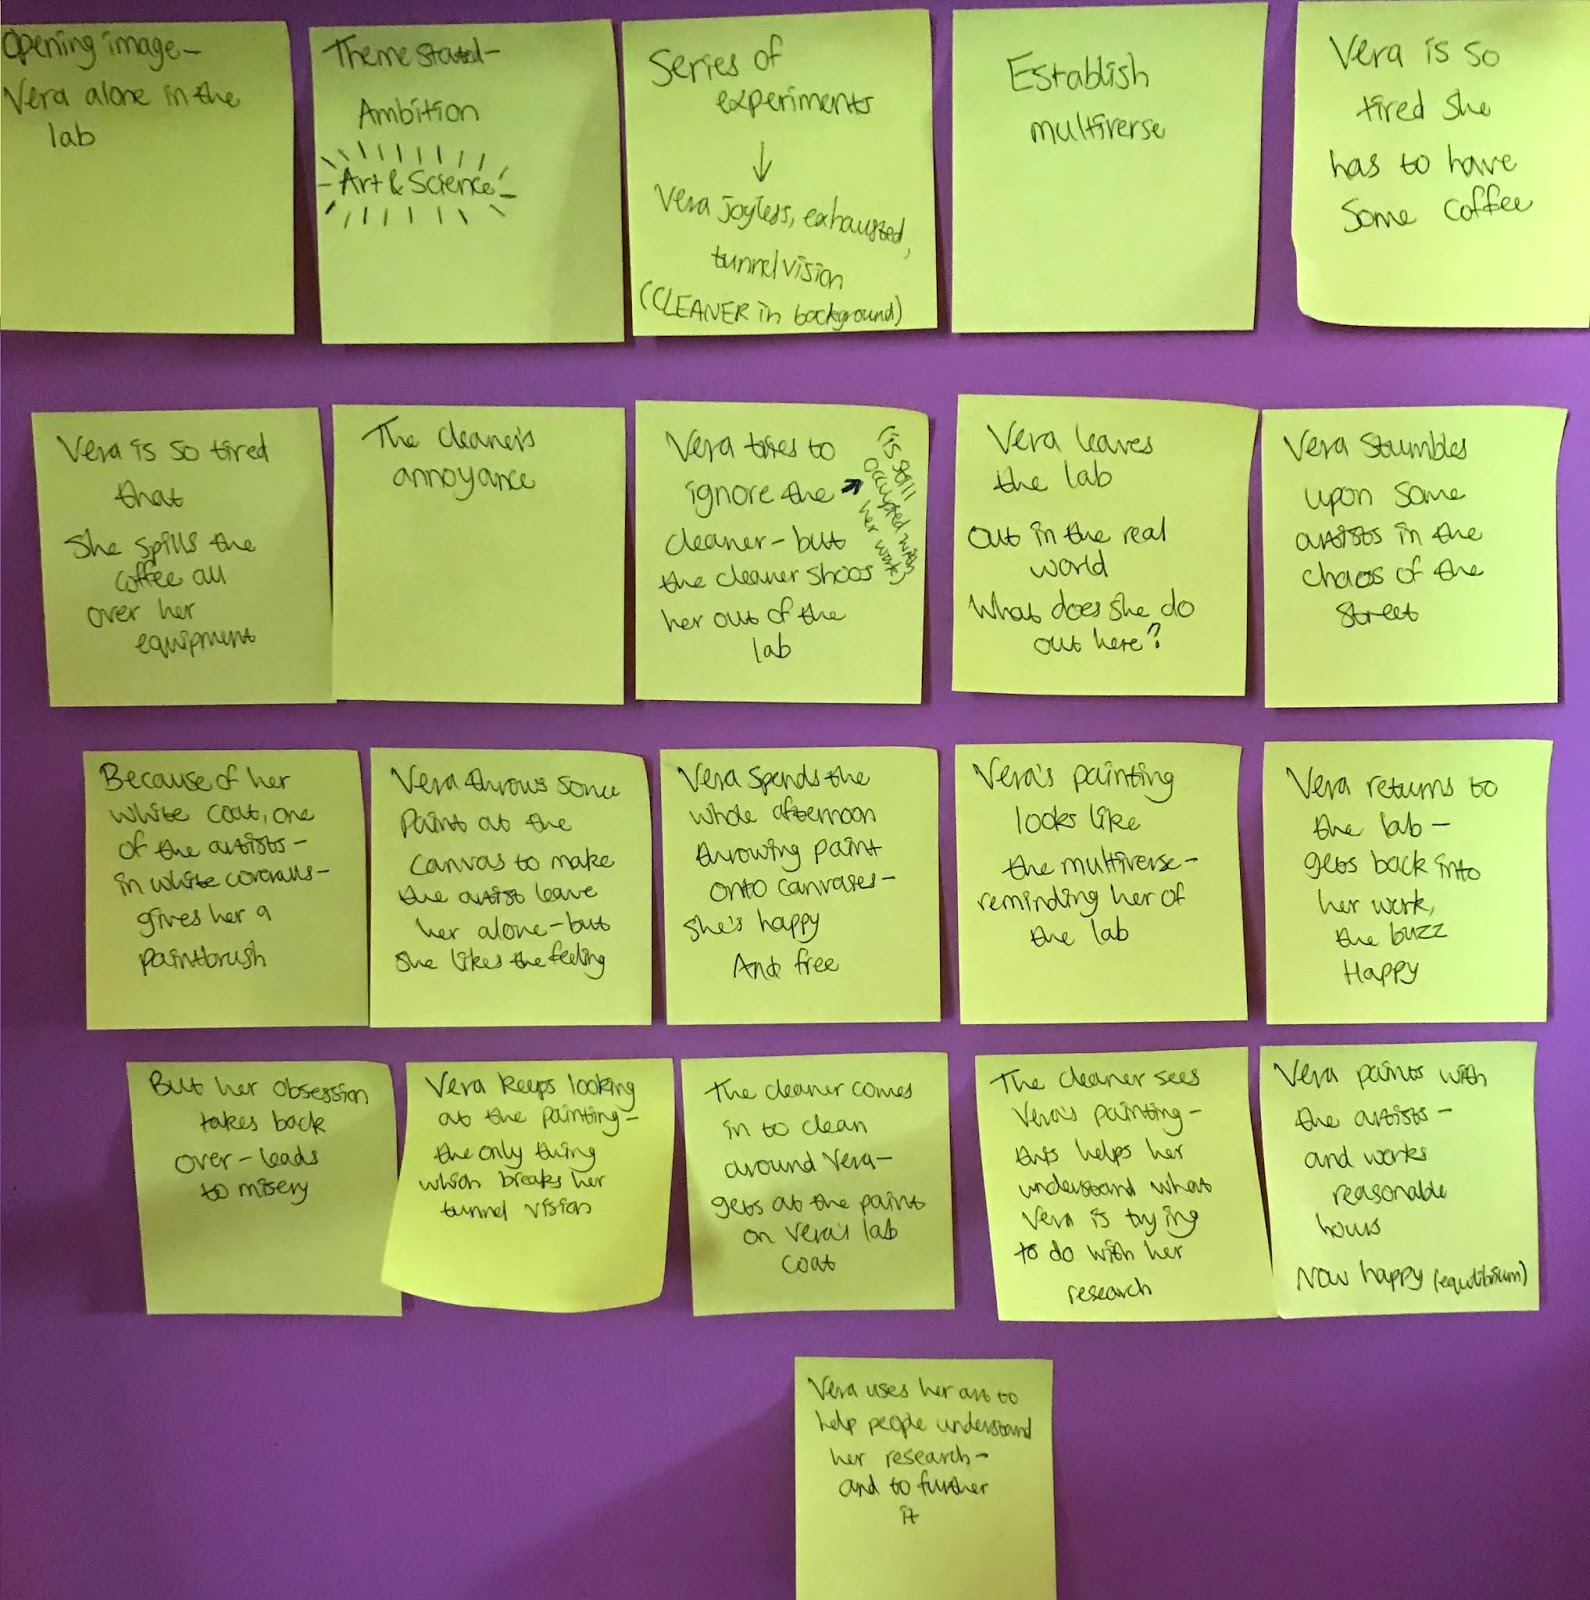 Opening image-
Vera alone in the
lab
Theme stated-
Ambition
Art & Science
Series of
experiments
↓
Vera joyless, exhausted,
tunnel vision
(CLEANER in background)
Establish
multiverse
Vera is so
tired she
has to have
some coffee
Vera is so tired
that
she spills the
coffee all
over her
equipment
The cleaner's
annoyance
Vera tries to
ignore the
cleaner - but
the cleaner shoos
her out of the
lab
(is still
occupied with
her work)
Vera leaves
the lab
Out in the real
world
What does she do
out here?
Vera stumbles
upon some
artists in the
chaos of the
street
Because of her
white coat, one
of the artists -
in white coveralls -
gives her a
paintbrush
Vera throws some
paint at the
canvas to make
the artist leave
her alone - but
she likes the feeling
Vera spends the
whole afternoon
throwing paint
onto canvases -
she's happy
And free
Vera's painting
looks like
the multiverse -
reminding her of
the lab
Vera returns to
the lab -
gets back into
her work,
the buzz
Happy
But her obsession
takes back
over - leads
to misery
Vera keeps looking
at the painting -
the only thing
which breaks her
tunnel vision
The cleaner comes
in to clean
around Vera -
gets at the paint
on Vera's lab
coat
The cleaner sees
Vera's painting -
this helps her
understand what
Vera is trying
to do with her
research
Vera paints with
the artists -
and works
reasonable
hours
Now happy (equilibrium)
Vera uses her art to
help people understand
her research -
and to further
it